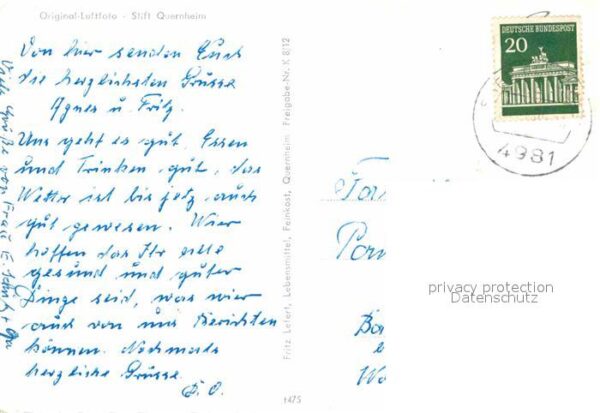 Original-Luftfoto - Stift Quernheim
Von hier senden Euch
die herzlichsten Grüsse
Agnes u. Fritz.
Uns geht es gut, Essen
und Trinken gut, das
Wetter ist bis jetz auch
gut gewesen. Wier
hoffen das Ihr alle
gesund und guter
Dinge seid, was wier
auch von uns Berichten
können. Nochmals
herzliche Grüsse.
D. O.
Viele Grüße von Frau E.
Fritz Lefert, Lebensmittel, Feinkost, Quernheim Freigabe-Nr. K 8/12
1475
DEUTSCHE BUNDESPOST
20
4981
Fa
privacy protection
Datenschutz